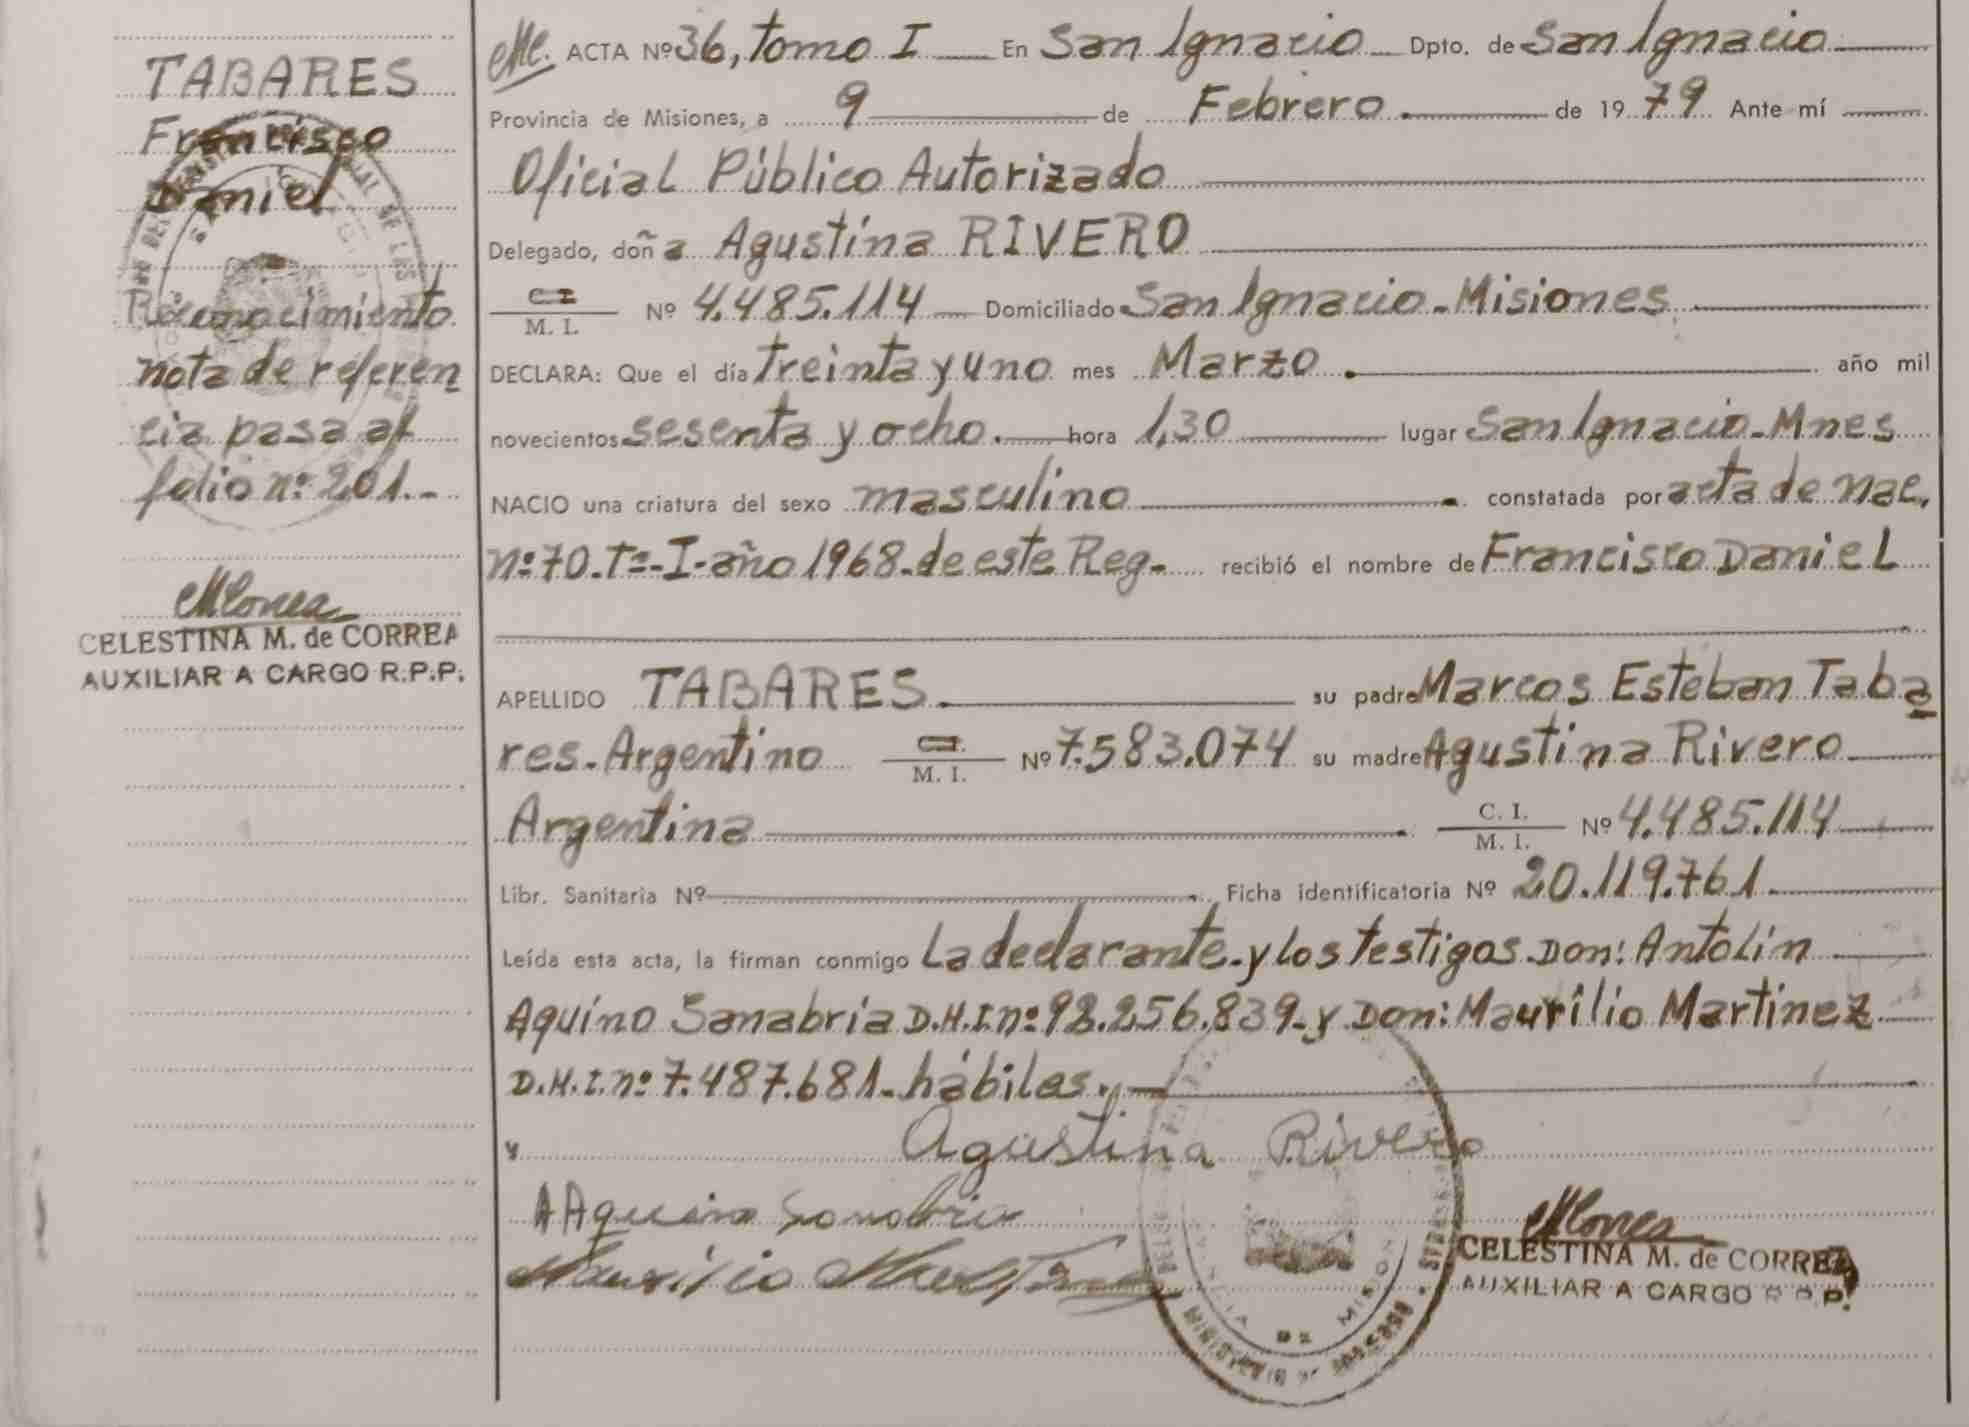 TABARES
Francisco
Daniel
Reconocimiento
nota de referen
cia pasa al
folio nº 201.-
CELESTINA M. de CORREA
AUXILIAR A CARGO R.P.P.
ACTA Nº 36, tomo I En San Ignacio Dpto. de San Ignacio
Provincia de Misiones, a 9 de Febrero. de 1979 Ante mí
Oficial Público Autorizado
Delegado, doña Agustina RIVERO
M. I. Nº 4.485.114 Domiciliado San Ignacio-Misiones
DECLARA: Que el día treinta y uno mes Marzo. año mil
novecientos sesenta y ocho. hora 1,30 lugar San Ignacio-Mnes
NACIO una criatura del sexo masculino constatada por acta de nac,
nº 70.Tº-I-año 1968-de este Reg- recibió el nombre de Francisco Daniel
APELLIDO TABARES. su padre Marcos Esteban Taba
res-Argentino C. I. M. I. Nº 7.583.074 su madre Agustina Rivero
Argentina C. I. M. I. Nº 4.485.114
Libr. Sanitaria Nº Ficha identificatoria Nº 20.119.761
Leída esta acta, la firman conmigo La declarante-y los testigos-Don: Antolín
Aquino Sanabria D.N.I.nº 92.256.839-y Don: Maurilio Martinez
D.N.I. nº 7.487.681-hábiles.,-
Agustina Rivero
A Aquino Sanabria
Maurilio Martinez
CELESTINA M. de CORREA
AUXILIAR A CARGO R.P.P.
MINISTERIO DE